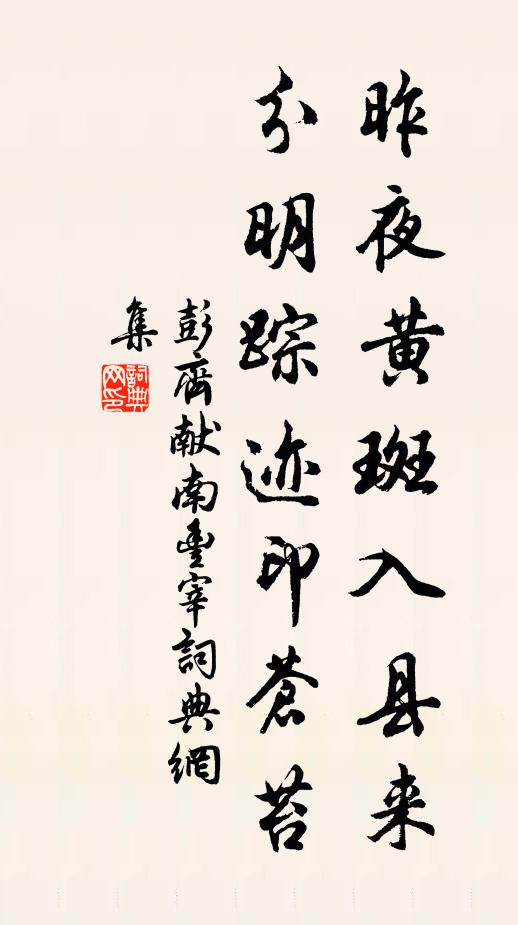 昨夜黄斑入县来
分明踪迹印苍苔
彭齋献南豊宰詞典網
集
詞典网印